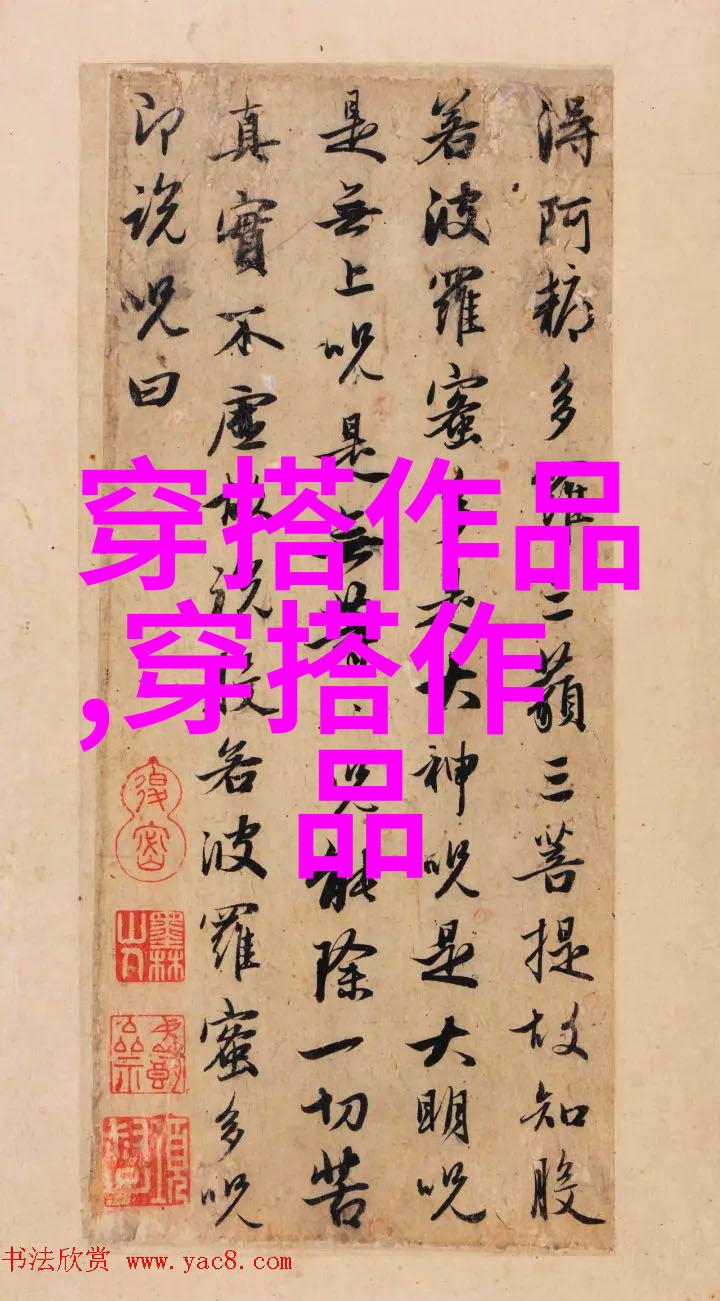 得阿耨多羅三藐三菩提故知般
若波羅蜜多是大神呪是大明呪
是無上呪是無等等呪能除一切苦
真實不虛故說般若波羅蜜多呪
即說呪曰
穿搭作品
,穿搭作
品
墨林
山人
书法欣赏 www.yac8.com